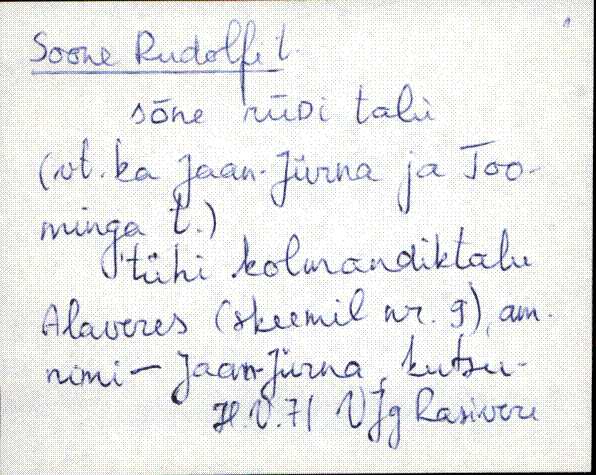 Soone Rudolfi t.
sōne rūDi talu
(vt. ka Jaan-Jürna ja Too-
minga t.)
'tühi kolmandiktalu
Alaveres (skeemil nr. 9), am.
nimi – Jaan-Jürna, kutsu-
H.V. 71 VJg Rasivere